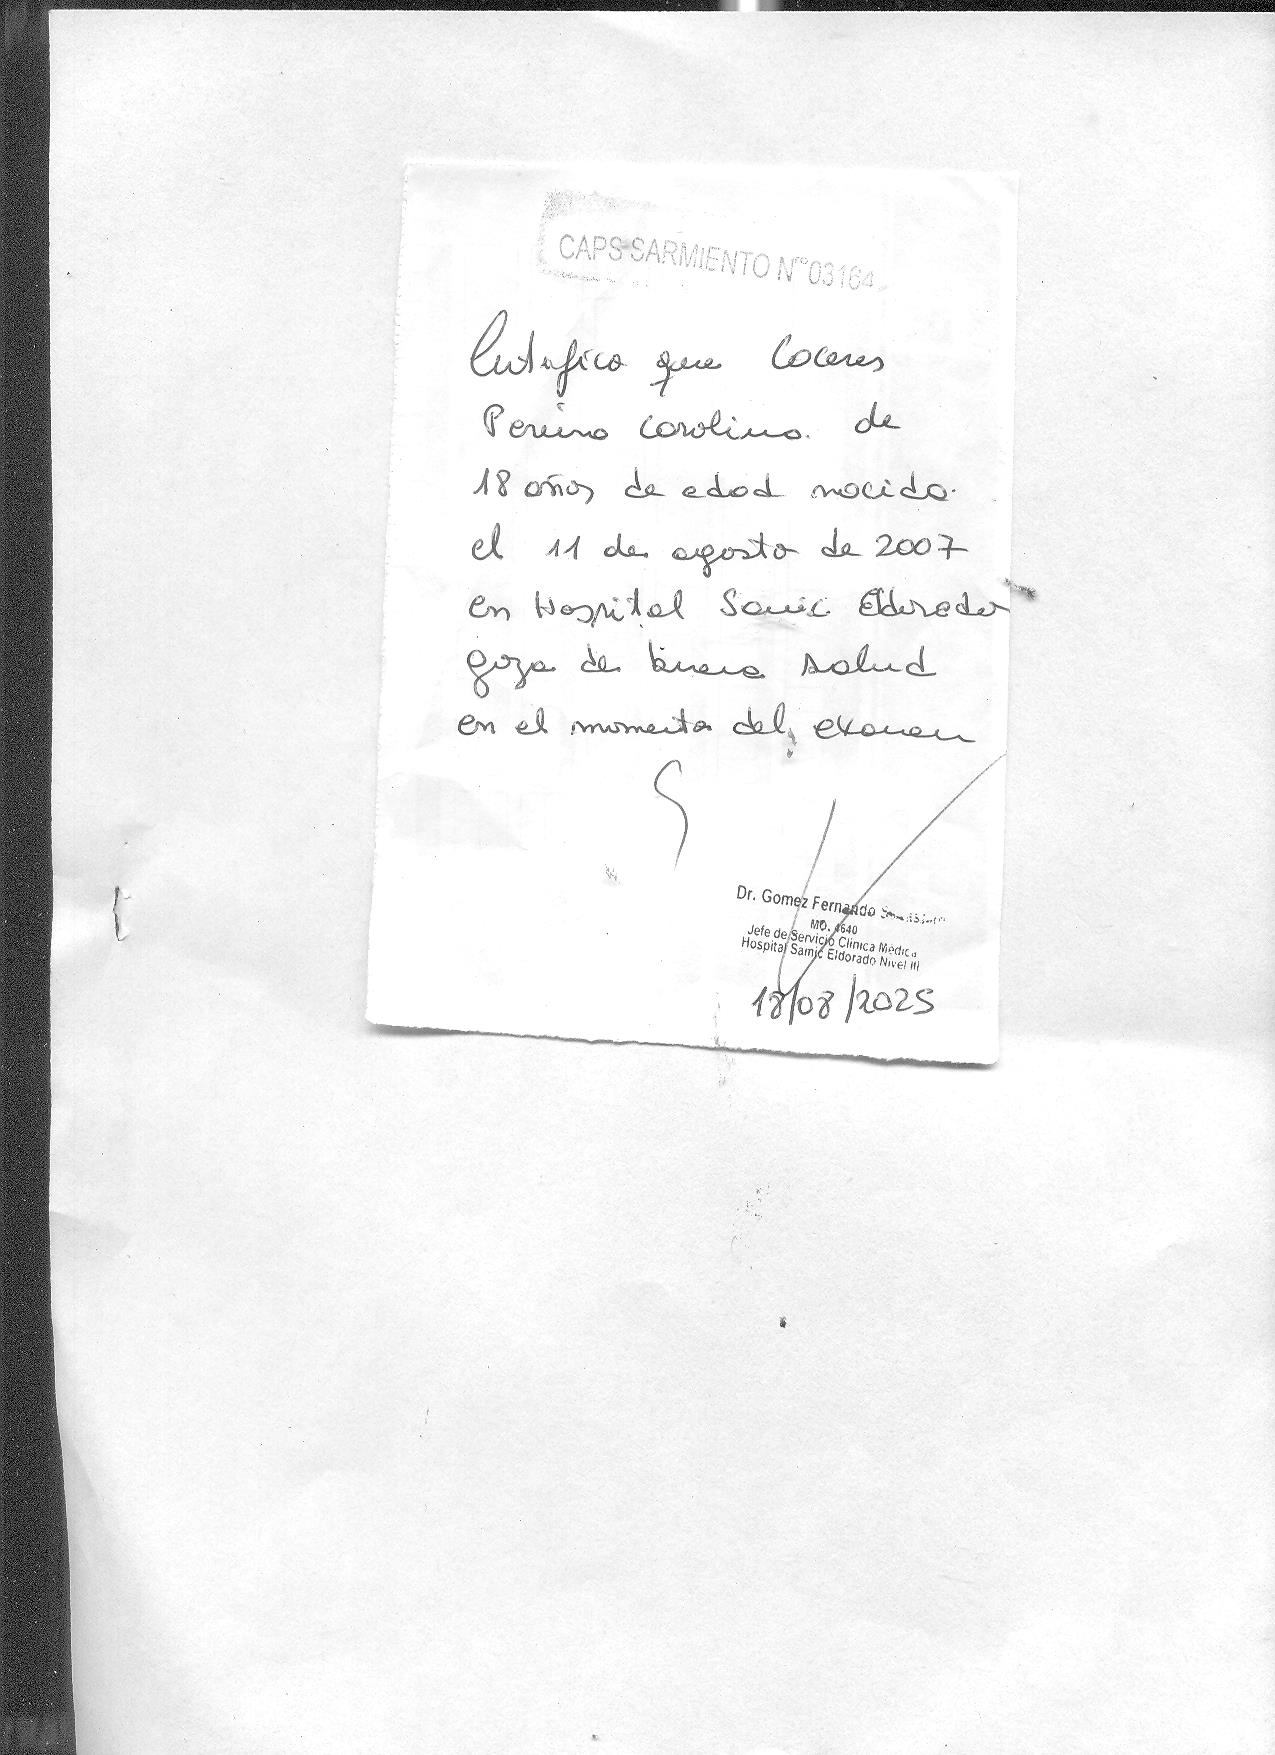 CAPS SARMIENTO N° 03164
Certifico que Caceres
Pereira Carolina de
18 años de edad nacida
el 11 de agosto de 2007
en Hospital Samic Eldorado
goza de buena salud
en el momento del examen
Dr. Gomez Fernando
MP. 4640
Jefe de Servicio Clínica Médica
Hospital Samic Eldorado Nivel III
18/08/2025